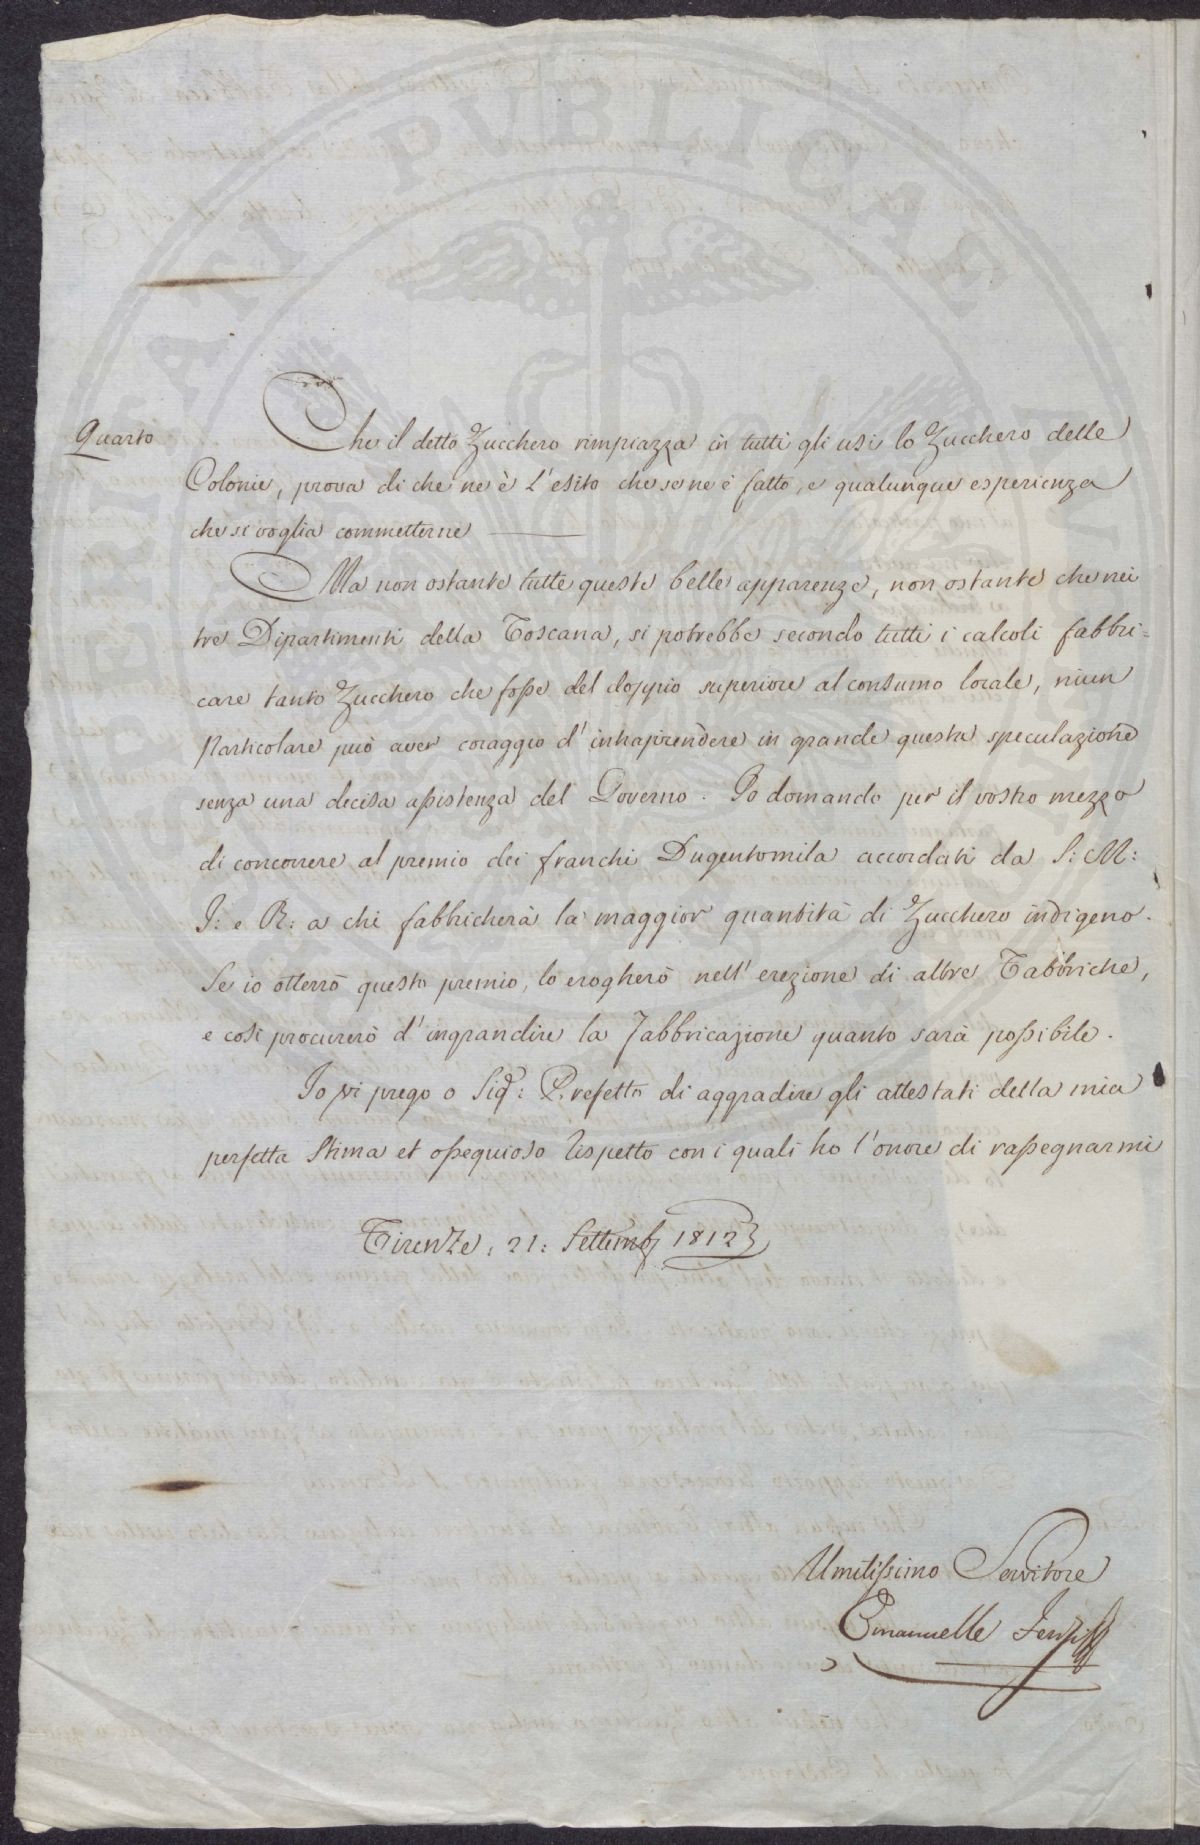 PROSPERITATI PUBLICAE AUGENDAE
Quarto
Che il detto Zucchero rimpiazza in tutti gli usi lo Zucchero delle
Colonie, prova di che ne è l'esito che se ne è fatto, e qualunque esperienza
che si voglia commetterne
Ma non ostante tutte queste belle apparenze, non ostante che nei
tre Dipartimenti della Toscana, si potrebbe secondo tutti i calcoli fabbri=
care tanto Zucchero che fosse del doppio superiore al consumo locale, niun
Particolare può aver coraggio d'intraprendere in grande questa speculazione
senza una decisa assistenza del Governo. Io domando per il vostro mezzo
di concorrere al premio dei franchi Dugentomila accordati da S: M:
I: e R: a chi fabbricherà la maggior quantità di Zucchero indigeno.
Se io otterrò questo premio, lo erogherò nell'erezione di altre Fabbriche,
e così procurerò d'ingrandire la Fabbricazione quanto sarà possibile.
Io vi prego o Sig: Prefetto di aggradire gli attestati della mia
perfetta Stima et ossequioso rispetto con i quali ho l'onore di rassegnarmi
Firenze, 21: Settemb 1812
Umilissimo Servitore
Emanuelle Fenzi